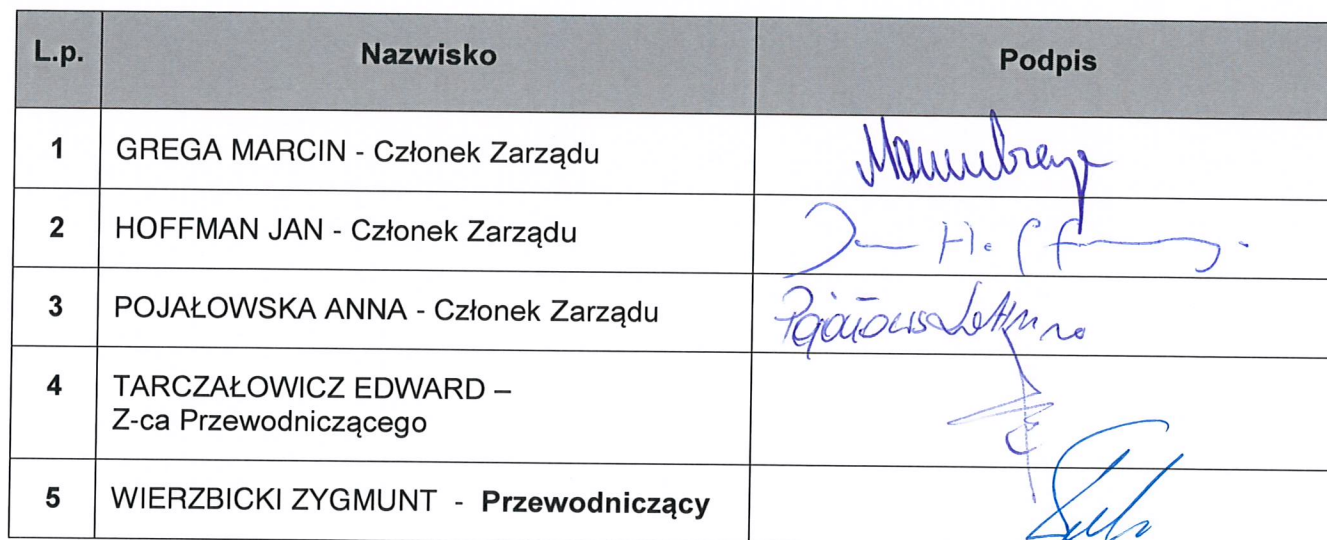 L.p. Nazwisko Podpis
1 GREGA MARCIN - Członek Zarządu
2 HOFFMAN JAN - Członek Zarządu
3 POJAŁOWSKA ANNA - Członek Zarządu
4 TARCZAŁOWICZ EDWARD –
Z-ca Przewodniczącego
5 WIERZBICKI ZYGMUNT - Przewodniczący